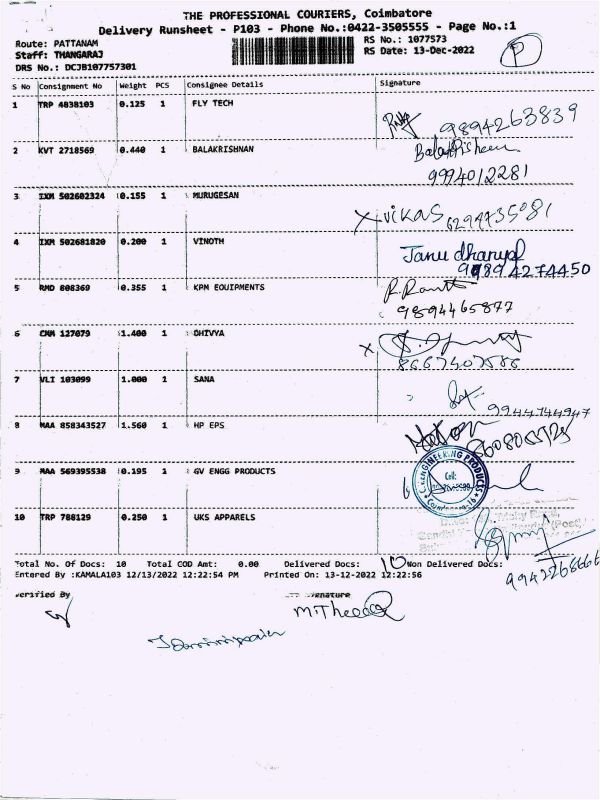 THE PROFESSIONAL COURIERS, Coimbatore
Delivery Runsheet - P103 - Phone No.:0422-3505555 - Page No.:1
Route: PATTANAM
RS No.: 1077573
P
Staff: THANGARAJ
RS Date: 13-Dec-2022
DRS No.: DCJB107757301
S No Consignment No Weight PCS Consignee Details Signature
1 TRP 4838103 0.125 1 FLY TECH
9894263839
2 KVT 2718569 0.440 1 BALAKRISHNAN
9994012281
3 IXM 502602324 0.155 1 MURUGESAN
X vikas
4 IXM 502681820 0.200 1 VINOTH
Janu
94274450
5 RMD 808369 0.355 1 KPM EQUIPMENTS
9894465877
6 CMM 127079 1.400 1 DHIVYA
X
7 VLI 103099 1.000 1 SANA
9944744947
8 MAA 858343527 1.560 1 HP EPS
9 MAA 569395538 0.195 1 GV ENGG PRODUCTS
ENGINEERING PRODUCTS
Cell:
10 TRP 788129 0.250 1 UKS APPARELS
Total No. Of Docs: 10 Total COD Amt: 0.00 Delivered Docs: 10 Non Delivered Docs:
9942268666
Entered By :KAMALA103 12/13/2022 12:22:54 PM Printed On: 13-12-2022 12:22:56
Verified By